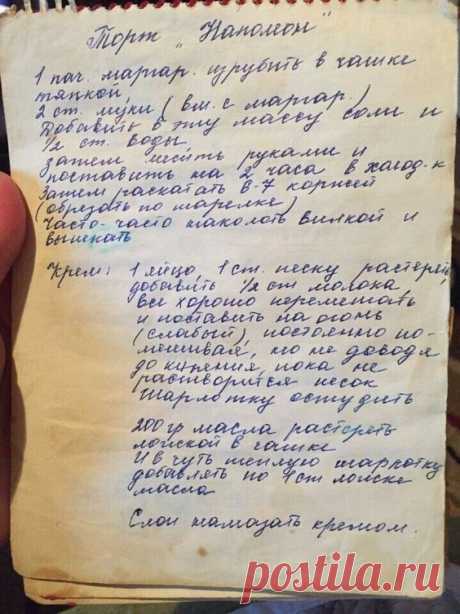 Торт „Наполеон"
1 пач. маргар. изрубить в чашке
тяпкой,
2 ст. муки (вм. с маргар.)
Добавить в эту массу соли и
1/2 ст. воды,
затем месить руками и
поставить на 2 часа в холод-к
Затем раскатать 6-7 коржей
(обрезать по тарелке)
Часто-часто наколоть вилкой и
выпекать
Крем: 1 яйцо, 1 ст. песку растереть
добавить 1/2 ст молока,
все хорошо перемешать
и поставить на огонь
(слабый), постоянно по-
мешивая, но не доводя
до кипения, пока не
растворится песок
Шарлотку остудить
200 гр масла растереть
ложкой в чашке
И в чуть теплую шарлотку
добавлять по 1 ст ложке
масла
Слои намазать кремом.
posta-magazine.ru